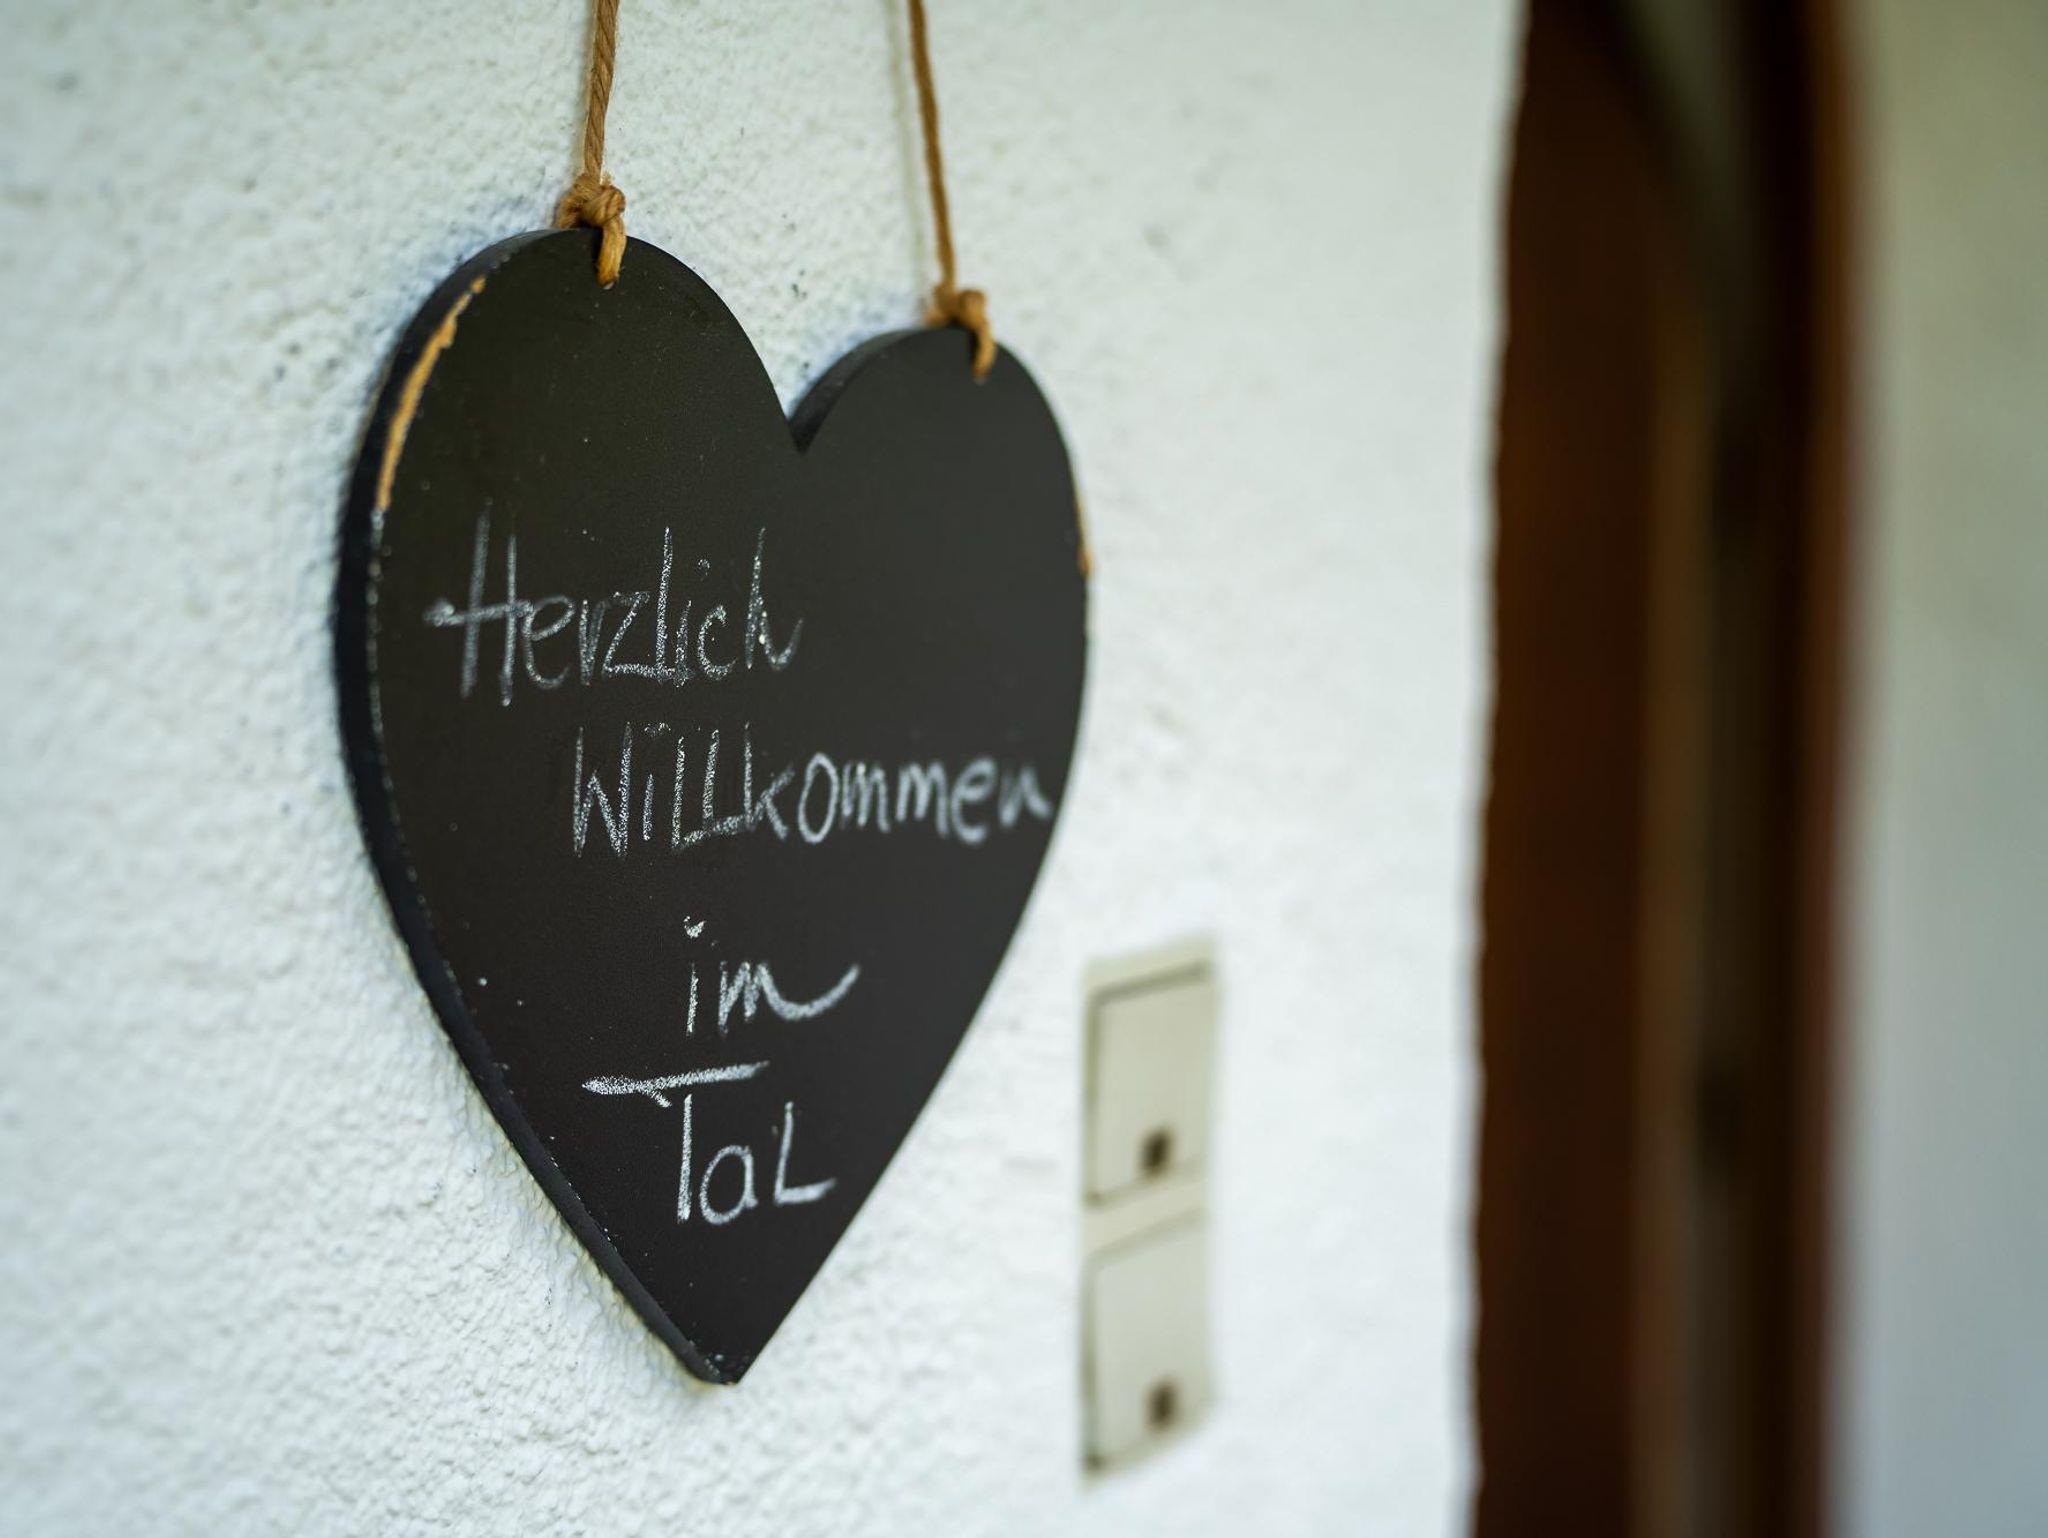 Herzlich
Willkommen
im
Tal